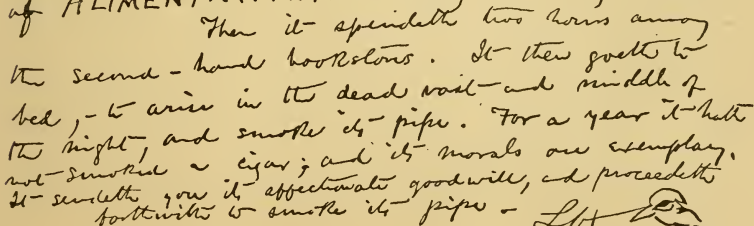 of ALIMENT
Then it spendeth two hours among
the second-hand bookstores. It then goeth to
bed,- to arise in the dead vast and middle of
the night, and smoke its pipe. For a year it hath
not smoked a cigar; and its morals are exemplary.
It sendeth you its affectionate goodwill, and proceedeth
forthwith to smoke its pipe -
LH